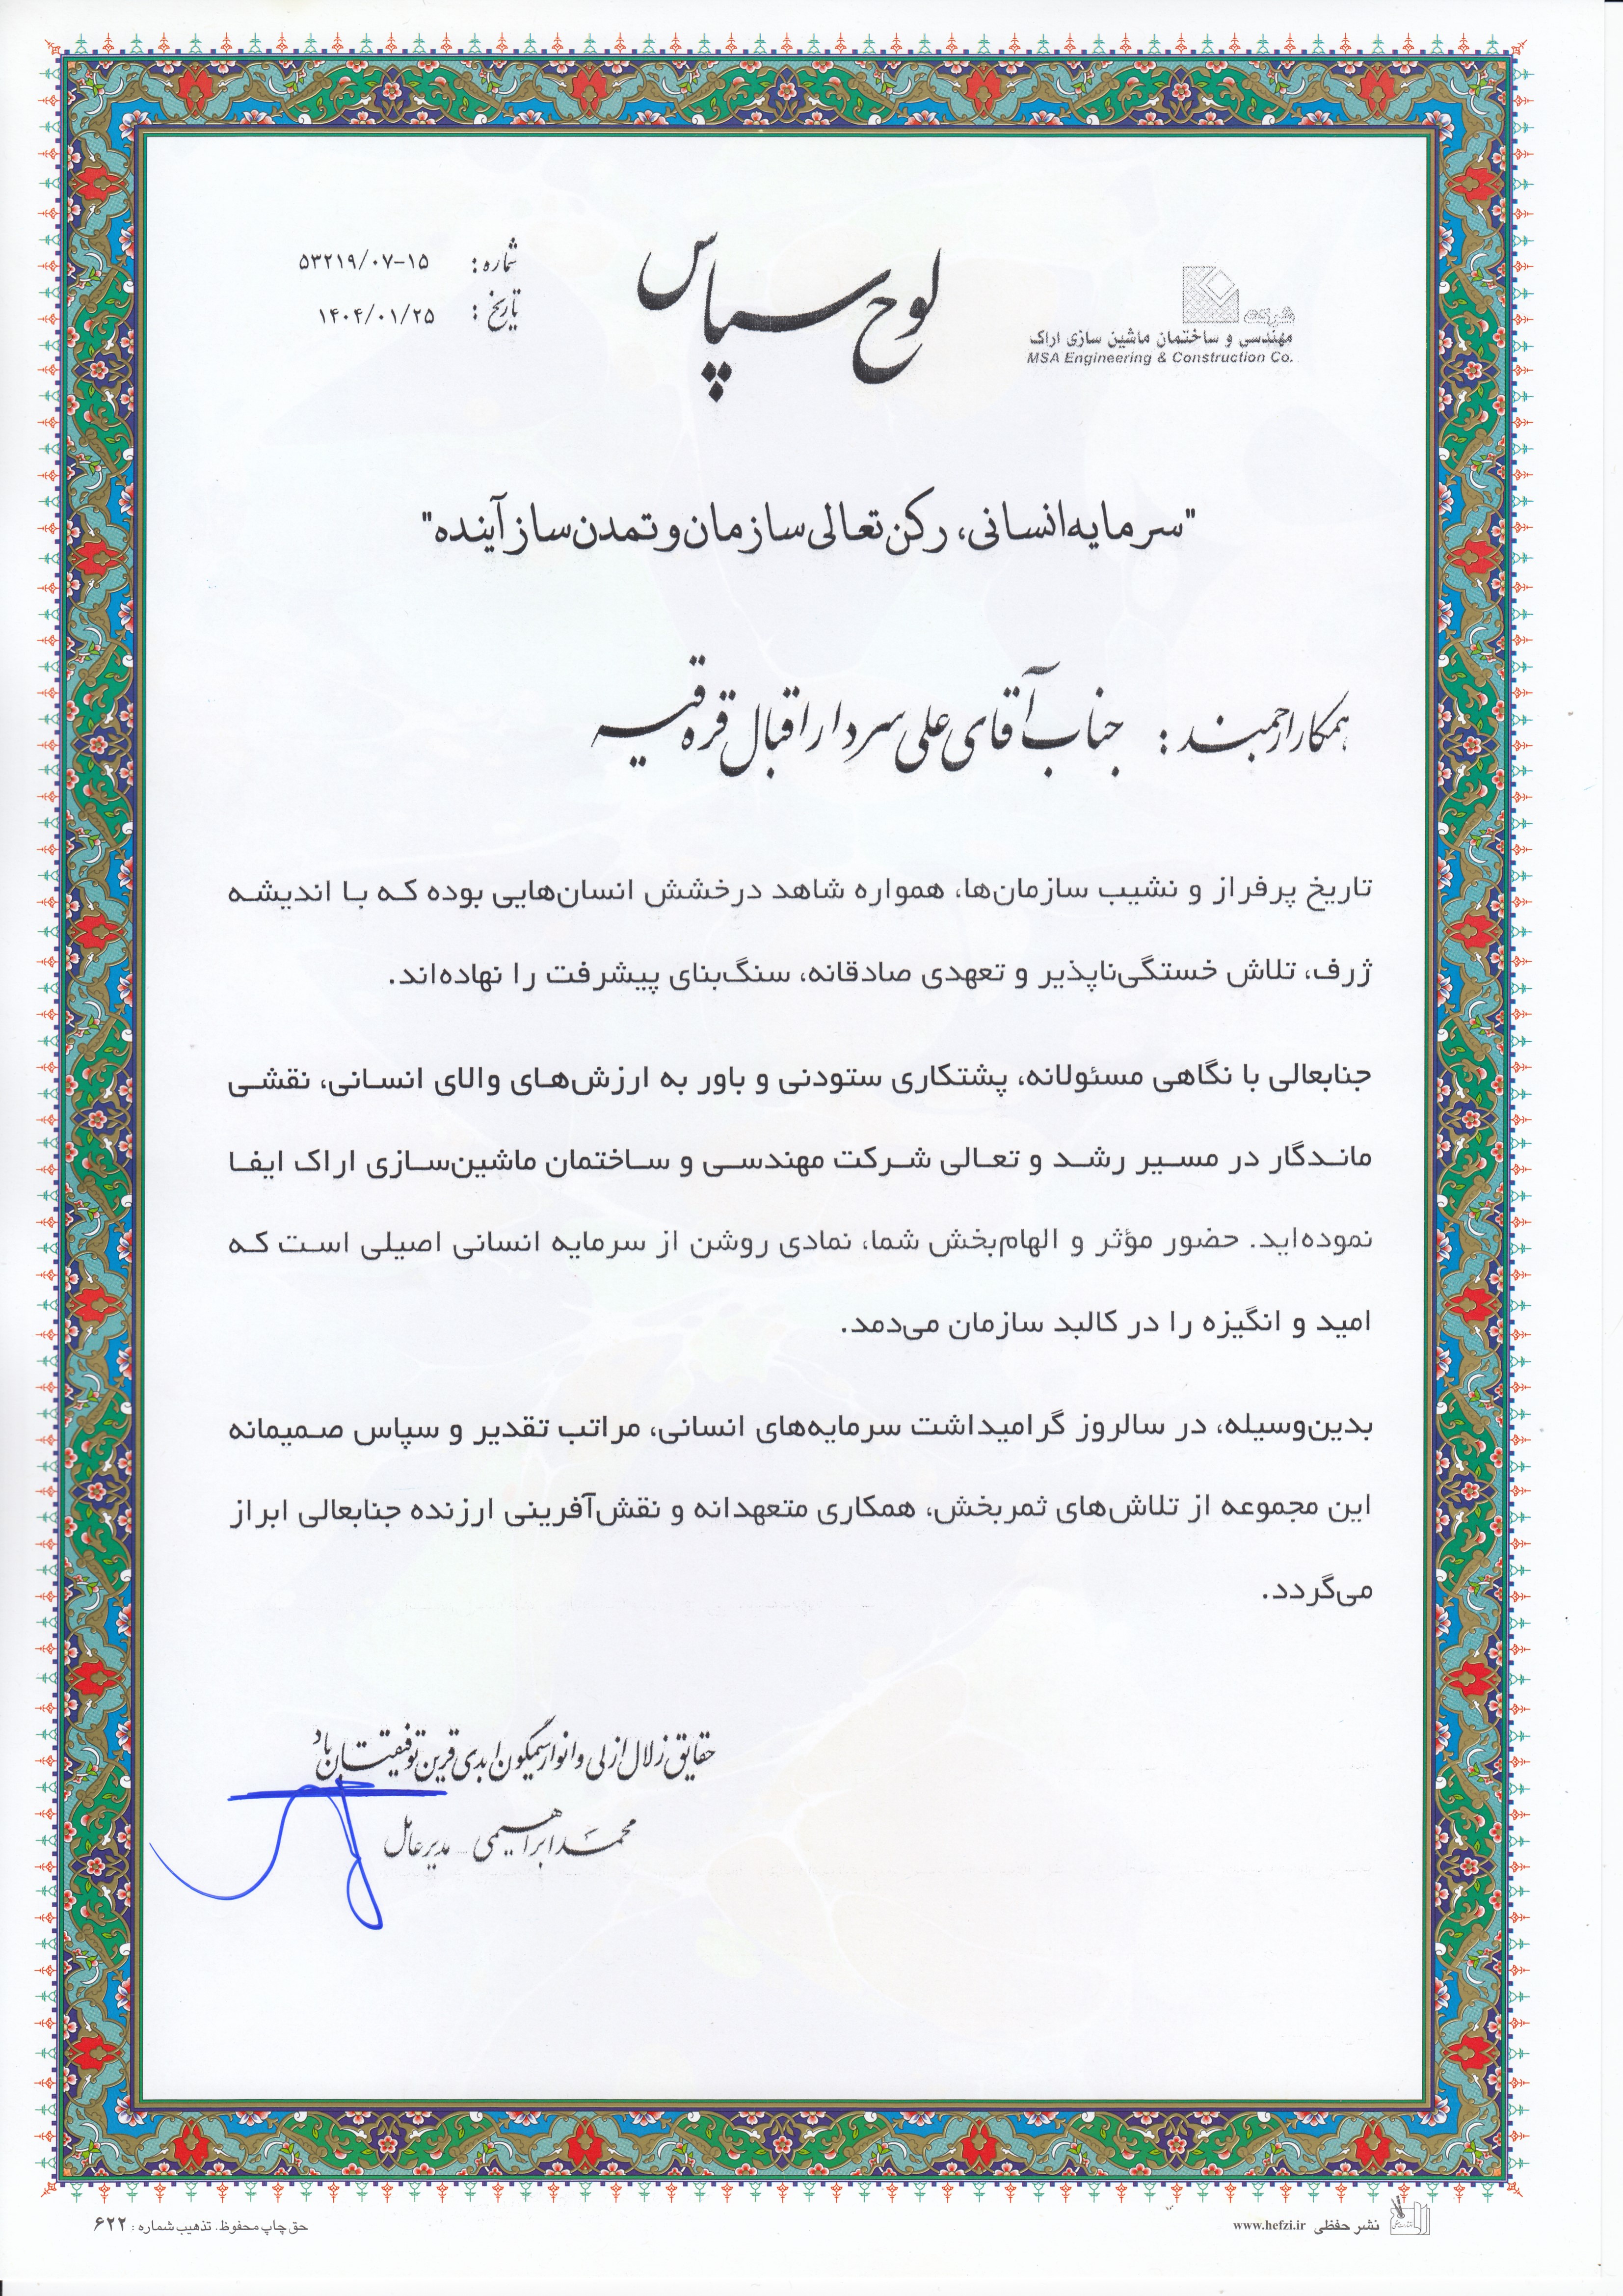 شرکت
مهندسی و ساختمان ماشین سازی اراک
MSA Engineering & Construction Co.
لوح سپاس
شماره : ۵۳۲۱۹/۰۷-۱۵
تاریخ : ۱۴۰۴/۰۱/۲۵
"سرمایه انسانی، رکن تعالی سازمان و تمدن ساز آینده"
همکار ارجمند : جناب آقای علی سردار اقبال قره قیه
تاریخ پرفراز و نشیب سازمان‌ها، همواره شاهد درخشش انسان‌هایی بوده که با اندیشه
ژرف، تلاش خستگی‌ناپذیر و تعهدی صادقانه، سنگ‌بنای پیشرفت را نهاده‌اند.
جنابعالی با نگاهی مسئولانه، پشتکاری ستودنی و باور به ارزش‌های والای انسانی، نقشی
ماندگار در مسیر رشد و تعالی شرکت مهندسی و ساختمان ماشین‌سازی اراک ایفا
نموده‌اید. حضور مؤثر و الهام‌بخش شما، نمادی روشن از سرمایه انسانی اصیلی است که
امید و انگیزه را در کالبد سازمان می‌دمد.
بدین‌وسیله، در سالروز گرامیداشت سرمایه‌های انسانی، مراتب تقدیر و سپاس صمیمانه
این مجموعه از تلاش‌های ثمربخش، همکاری متعهدانه و نقش‌آفرینی ارزنده جنابعالی ابراز
می‌گردد.
حقایق زلال ازلی و انوار سیمگون ابدی قرین توفیقتان باد
محمد ابراهیمی - مدیرعامل
نشر حفظی www.hefzi.ir
حق چاپ محفوظ. تذهیب شماره : ۶۲۲